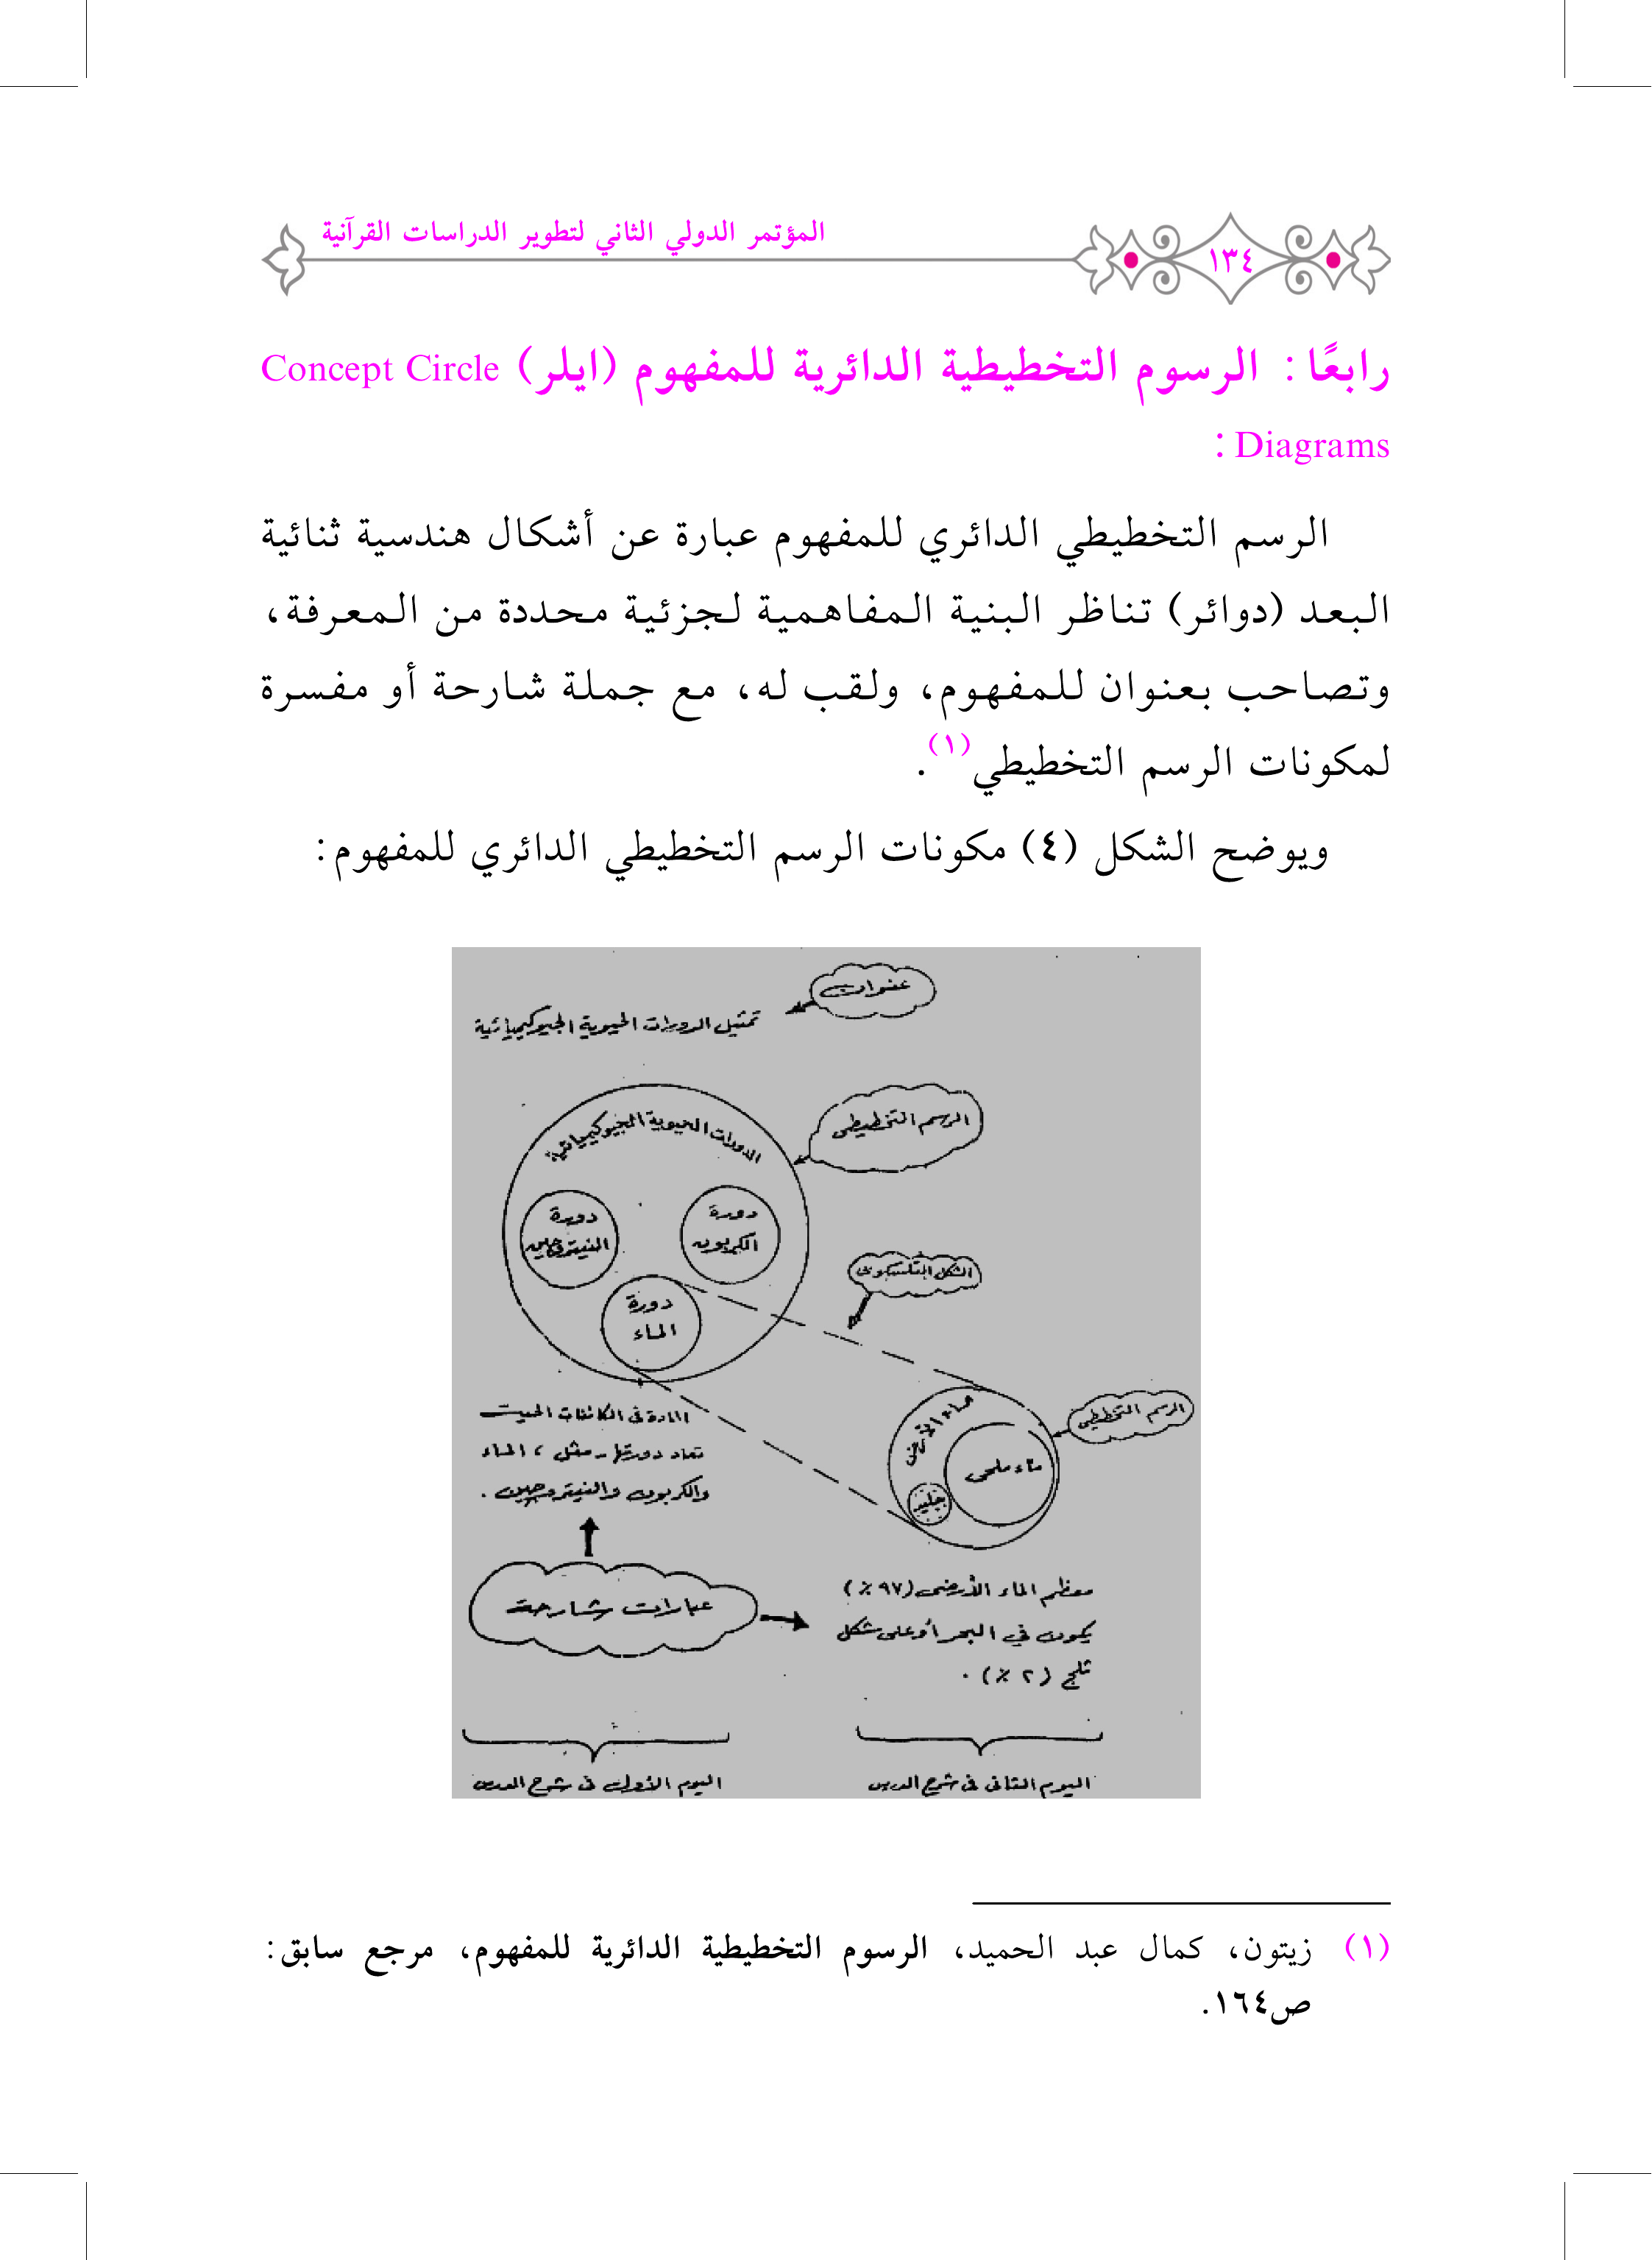 المؤتمر الدولي الثاني لتطوير الدراسات القرآنية
١٣٤
رابعًا: الرسوم التخطيطية الدائرية للمفهوم (ايلر) Concept Circle
Diagrams :
الرسم التخطيطي الدائري للمفهوم عبارة عن أشكال هندسية ثنائية
البعد (دوائر) تناظر البنية المفاهمية لجزئية محددة من المعرفة،
وتصاحب بعنوان للمفهوم، ولقب له، مع جملة شارحة أو مفسرة
لمكونات الرسم التخطيطي(١).
ويوضح الشكل (٤) مكونات الرسم التخطيطي الدائري للمفهوم:
عنوان
تمثيل الدورات الحيوية الجيوكيميائية
الرسم التخطيطى
الدورات الحيوية الجيوكيميائية
دورة
الكربون
دورة
النيتروجين
دورة
الماء
الشكل التلسكوبى
الرسم التخطيطى
ماء الأرض
ماء ملحى
جليد
المادة فى الكائنات الحية
تعاد دورتها - مثل ، الماء
والكربون والنيتروجين .
عبارات شارحة
معظم الماء الأرضى (٩٧ ٪)
يكون في البحر أو على شكل
ثلج (٢ ٪) .
اليوم الثانى فى شرح الدرس
اليوم الأول فى شرح الدرس
(١) زيتون، كمال عبد الحميد، الرسوم التخطيطية الدائرية للمفهوم، مرجع سابق:
ص١٦٤.